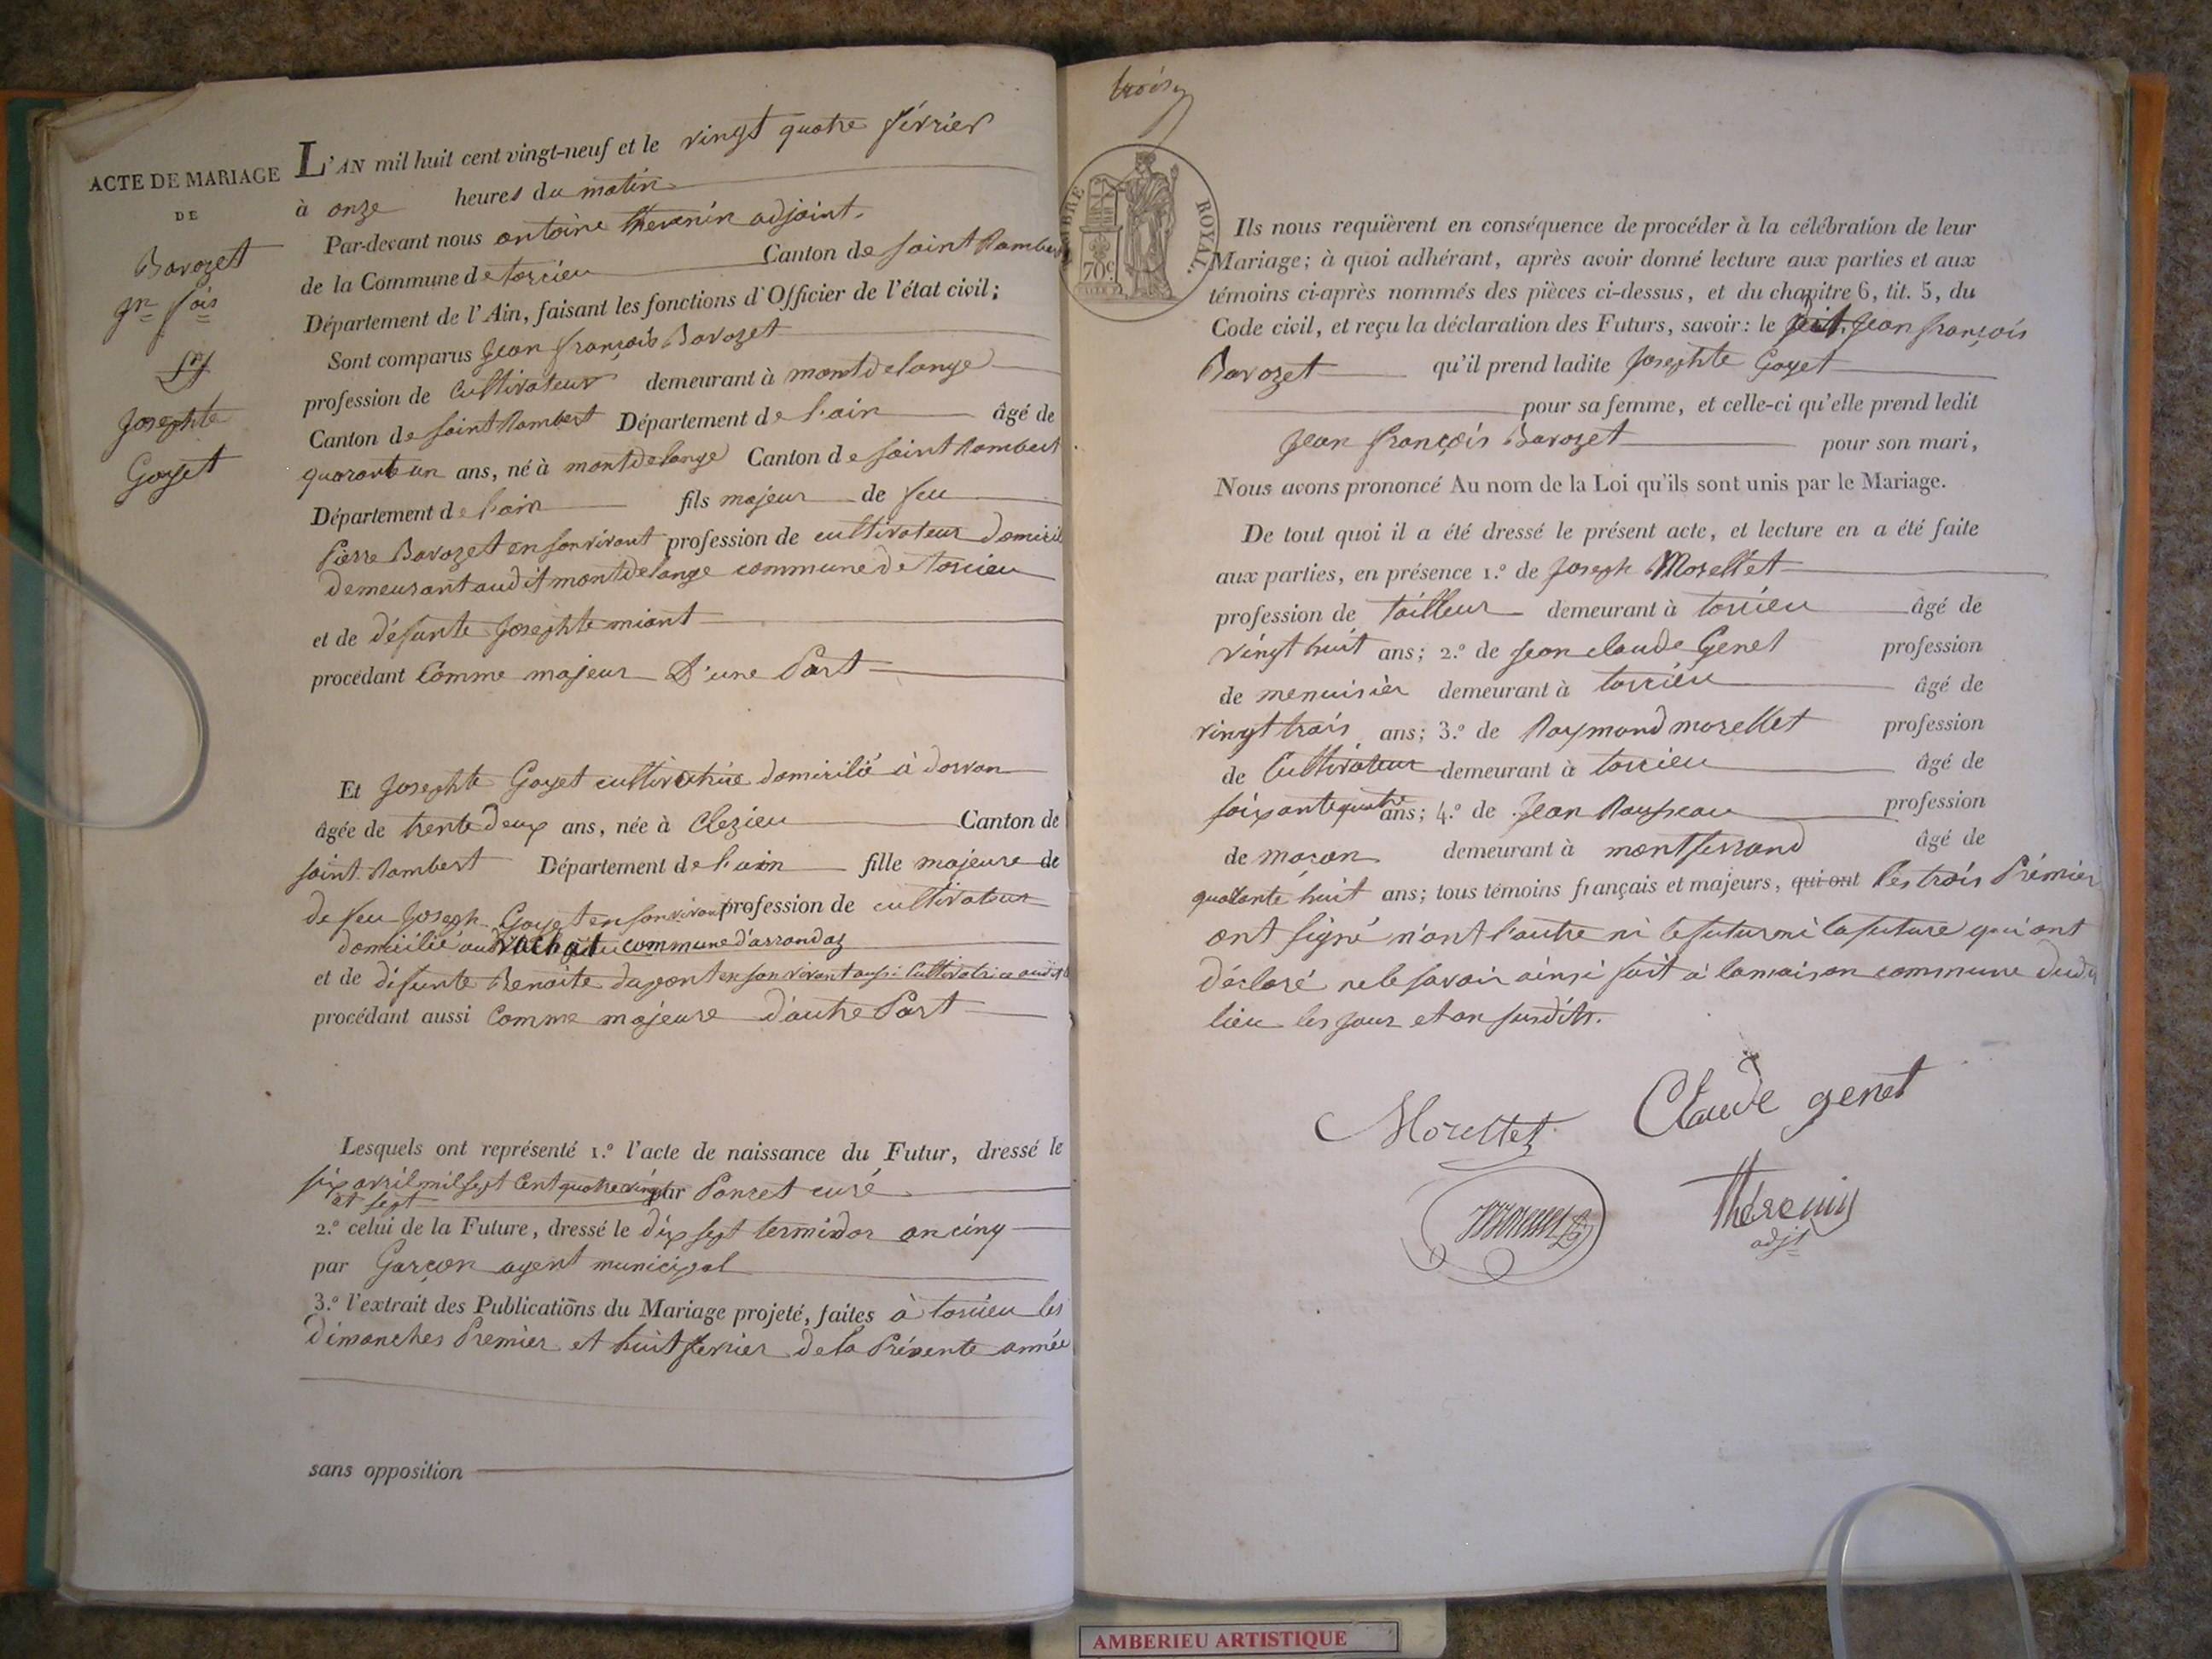 ACTE DE MARIAGE
DE
Bavozet
jn fois
et
Josephte
Goyet
L'AN mil huit cent vingt-neuf et le vingt quatre février
à onze heures du matin
Par-devant nous antoine thevenin adjoint.
de la Commune de torcieu Canton de saint Rambert
Département de l'Ain, faisant les fonctions d'Officier de l'état civil;
Sont comparus Jean françois Bavozet
profession de Cultivateur demeurant à montdelange
Canton de saint Rambert Département de l'ain âgé de
quarante un ans, né à montdelange Canton de saint Rambert
Département de l'ain fils majeur de feu
Pierre Bavozet en son vivant profession de cultivateur domicil
demeurant audit montdelange commune de torcieu
et de défunte Josephte miant
procédant Comme majeur D'une Part
Et Josephte Goyet cultivatrice domicilié à dorvan
âgée de trente deux ans, née à Clezieu Canton de
saint Rambert Département de l'ain fille majeure de
de feu Joseph Goyet en son vivant profession de cultivateur
domicilié au vachat commune d'arrandaz
et de défunte Benoite dupont en son vivant aussi Cultivatrice audit
procédant aussi Comme majeure d'autre Part
Lesquels ont représenté 1.º l'acte de naissance du Futur, dressé le
six avril mil sept Cent quatre vingt par Ponset curé
et sept
2.º celui de la Future, dressé le dix sept termidor an cinq
par Garçon agent municipal
3.º l'extrait des Publications du Mariage projeté, faites à torcieu les
dimanches Premier et huit fevrier de la Présente année
sans opposition
trois
TIMBRE ROYAL
70c
Ils nous requièrent en conséquence de procéder à la célébration de leur
Mariage; à quoi adhérant, après avoir donné lecture aux parties et aux
témoins ci-après nommés des pièces ci-dessus, et du chapitre 6, tit. 5, du
Code civil, et reçu la déclaration des Futurs, savoir: le Jean françois
Bavozet qu'il prend ladite Josephte Goyet
pour sa femme, et celle-ci qu'elle prend ledit
Jean françois Bavozet pour son mari,
Nous avons prononcé Au nom de la Loi qu'ils sont unis par le Mariage.
De tout quoi il a été dressé le présent acte, et lecture en a été faite
aux parties, en présence 1.º de Joseph Morellet
profession de tailleur demeurant à torcieu âgé de
vingt huit ans; 2.º de Jean claude Genet profession
de menuisier demeurant à torcieu âgé de
vingt trois ans; 3.º de Raymond morellet profession
de Cultivateur demeurant à torcieu âgé de
soixante quatre ans; 4.º de Jean Rousseau profession
de maçon demeurant à montferrand âgé de
quarante huit ans; tous témoins français et majeurs, qui ont les trois Prémiers
ont signé n'ont l'autre ni le futur ni la future qui ont
déclaré ne le savoir ainsi fait à la maison commune dudit
lieu les jour et an susdits.
Morellet
Claude genet
Thévenin
adjt
AMBERIEU ARTISTIQUE